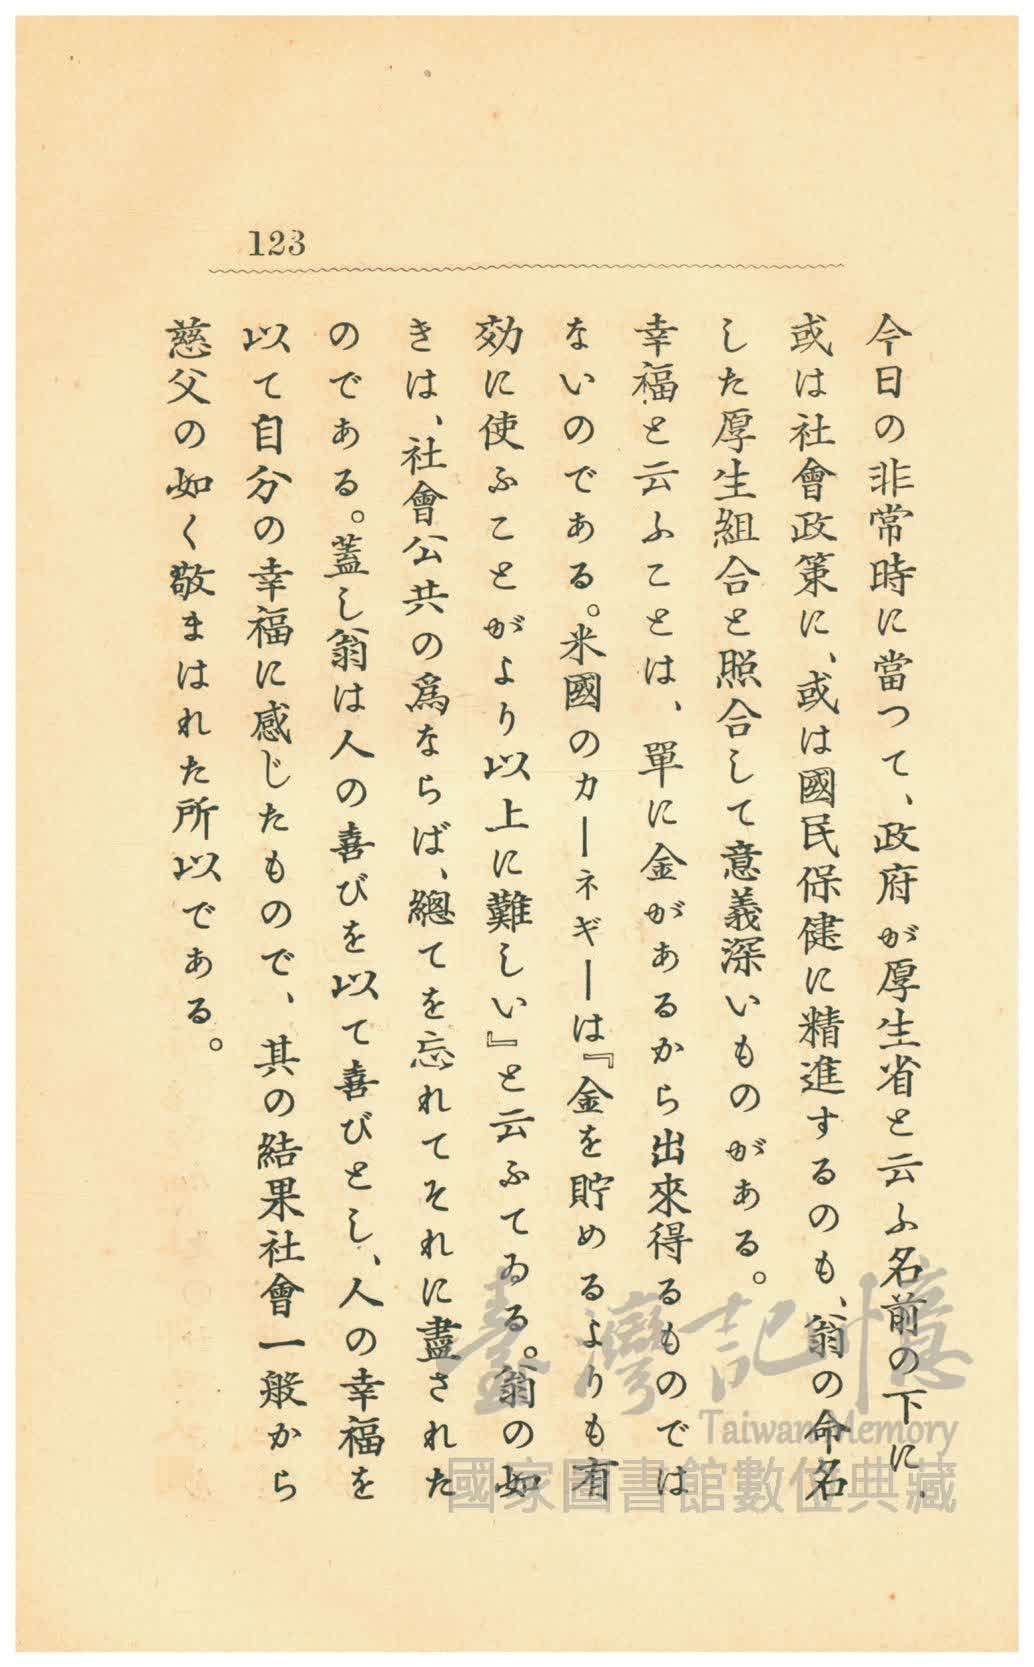 123
今日の非常時に當つて、政府が厚生省と云ふ名前の下に、
或は社會政策に、或は國民保健に精進するのも、翁の命名
した厚生組合と照合して意義深いものがある。
幸福と云ふことは、單に金があるから出來得るものでは
ないのである。米國のカーネギーは『金を貯めるよりも有
効に使ふことがより以上に難しい』と云ふてゐる。翁の如
きは、社會公共の爲ならば、總てを忘れてそれに盡された
のである。蓋し翁は人の喜びを以て喜びとし、人の幸福を
以て自分の幸福に感じたもので、其の結果社會一般から
慈父の如く敬まはれた所以である。
臺灣記憶
Taiwan Memory
國家圖書館數位典藏